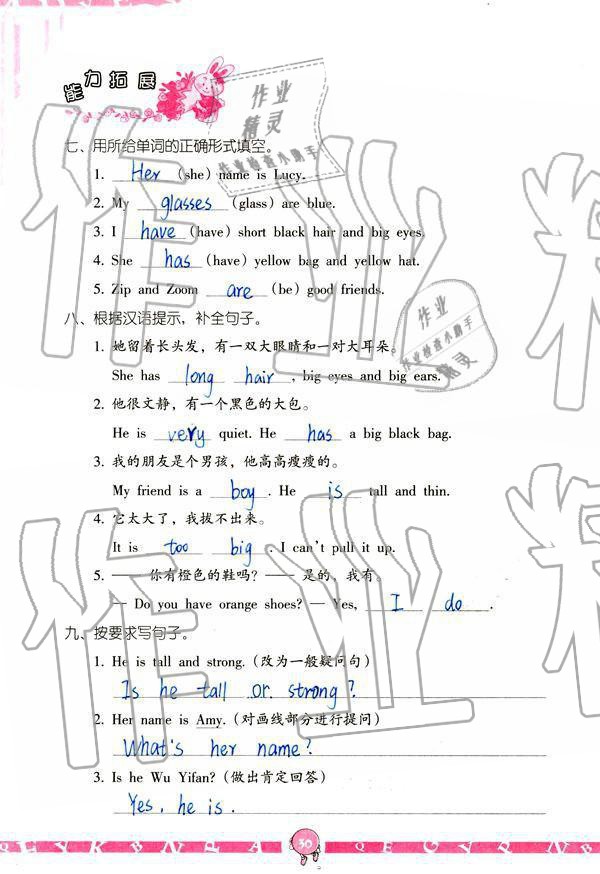 能力拓展
七、用所给单词的正确形式填空。
1. Her (she) name is Lucy.
2. My glasses (glass) are blue.
3. I have (have) short black hair and big eyes.
4. She has (have) yellow bag and yellow hat.
5. Zip and Zoom are (be) good friends.
八、根据汉语提示，补全句子。
1. 她留着长头发，有一双大眼睛和一对大耳朵。
She has long hair , big eyes and big ears.
2. 他很文静，有一个黑色的大包。
He is very quiet. He has a big black bag.
3. 我的朋友是个男孩，他高高瘦瘦的。
My friend is a boy . He is tall and thin.
4. 它太大了，我拔不出来。
It is too big . I can't pull it up.
5. —— 你有橙色的鞋吗？—— 是的，我有。
— Do you have orange shoes? — Yes, I do .
九、按要求写句子。
1. He is tall and strong. (改为一般疑问句)
Is he tall or strong?
2. Her name is Amy. (对画线部分进行提问)
What's her name?
3. Is he Wu Yifan? (做出肯定回答)
Yes, he is.
30
作业精灵
作业检查小助手
作业精灵
作业检查小助手